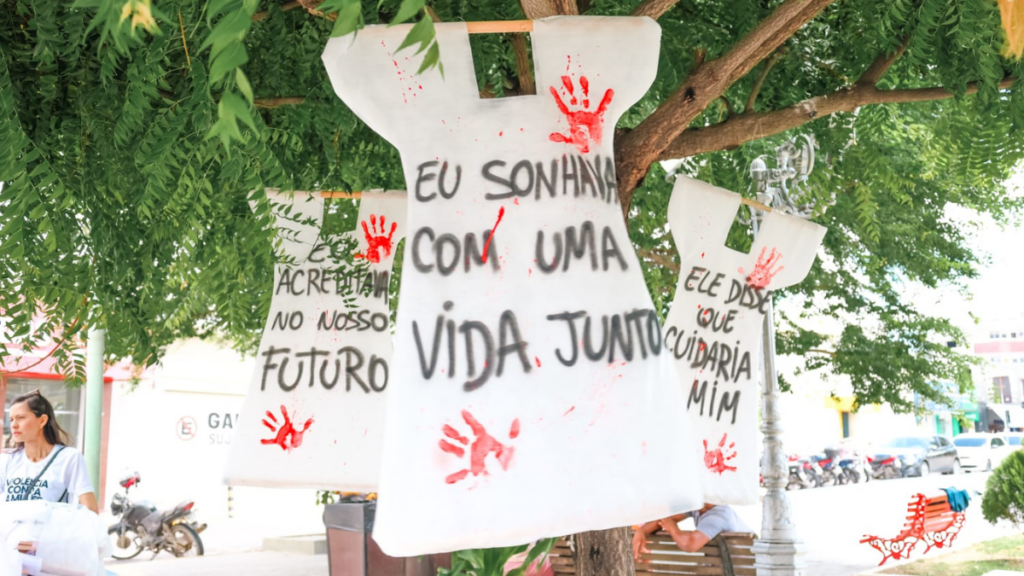 EU SONHAVA
COM UMA
VIDA JUNTO
E
ACREDITAVA
NO NOSSO
FUTURO
ELE DISSE
QUE
CUIDARIA
MIM
VIOLÊNCIA
CONTRA
A MULHER